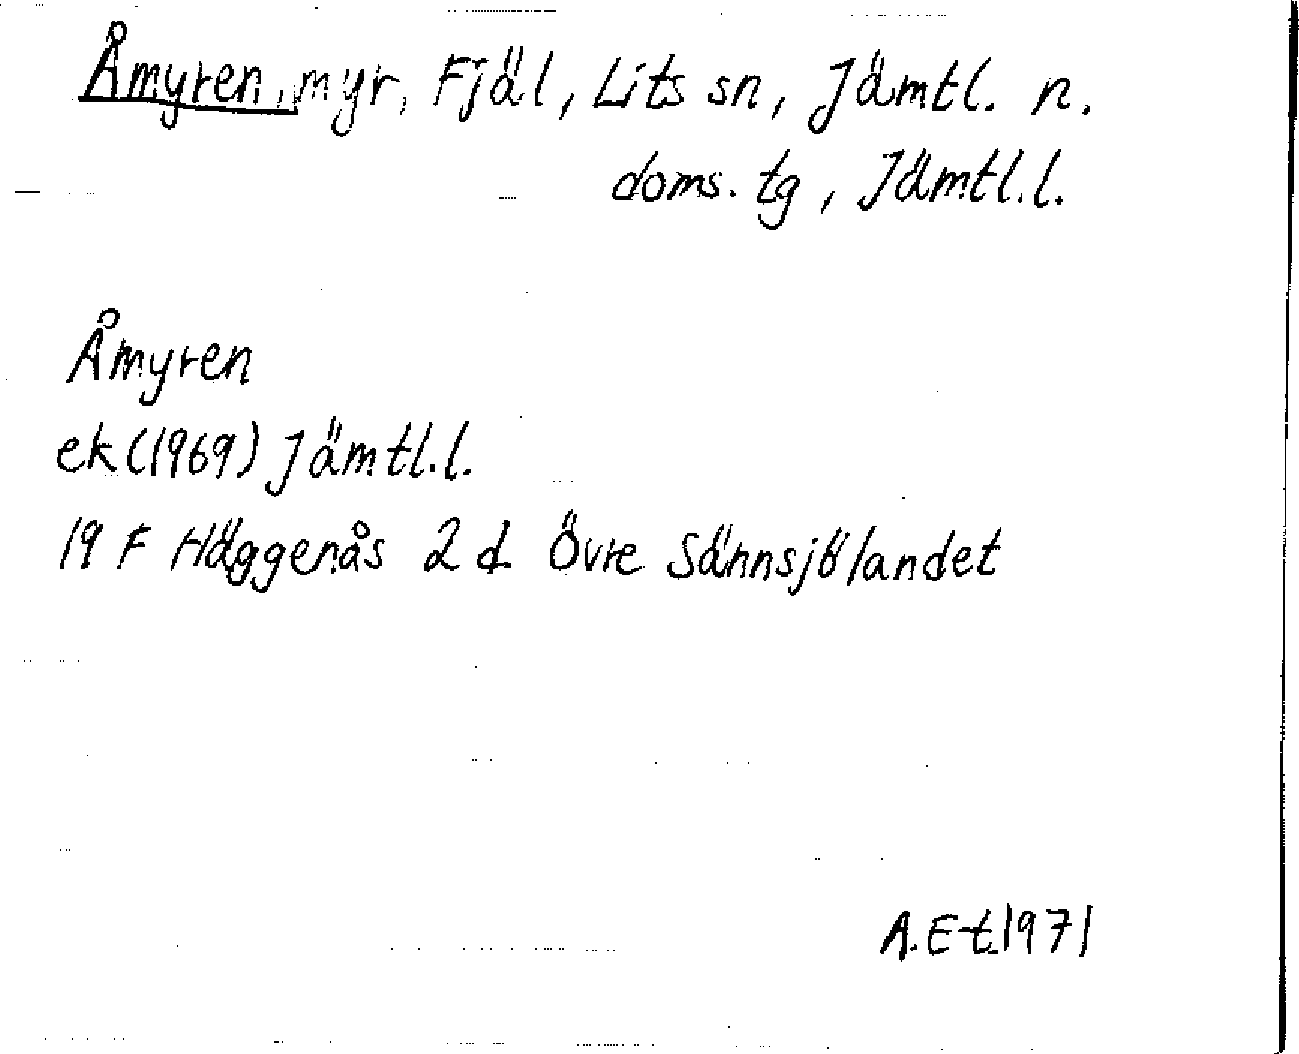 Åmyren, myr, Fjäl, Lits sn, Jämtl. n.
doms. tg, Jämtl. l.
Åmyren
ek (1969) Jämtl. l.
19 F Häggenås 2 d Övre Sännsjölandet
A. E-t. 1971